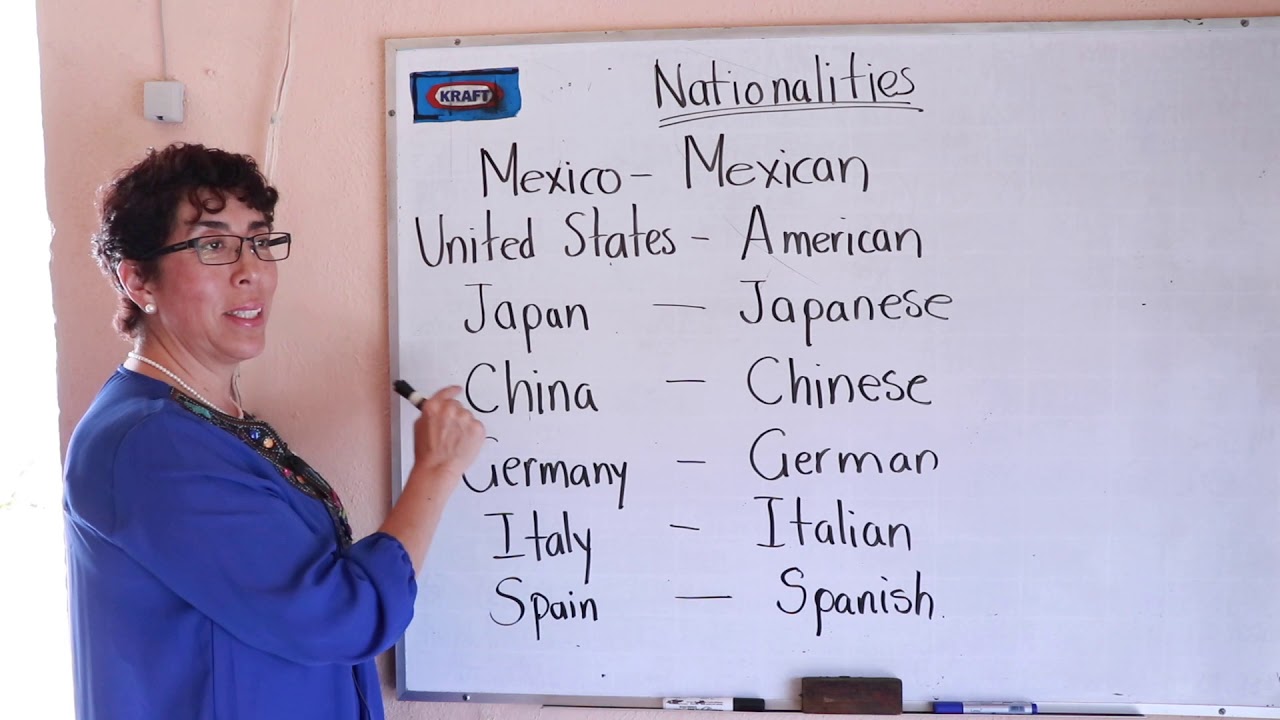 KRAFT
Nationalities
Mexico - Mexican
United States - American
Japan - Japanese
China - Chinese
Germany - German
Italy - Italian
Spain - Spanish